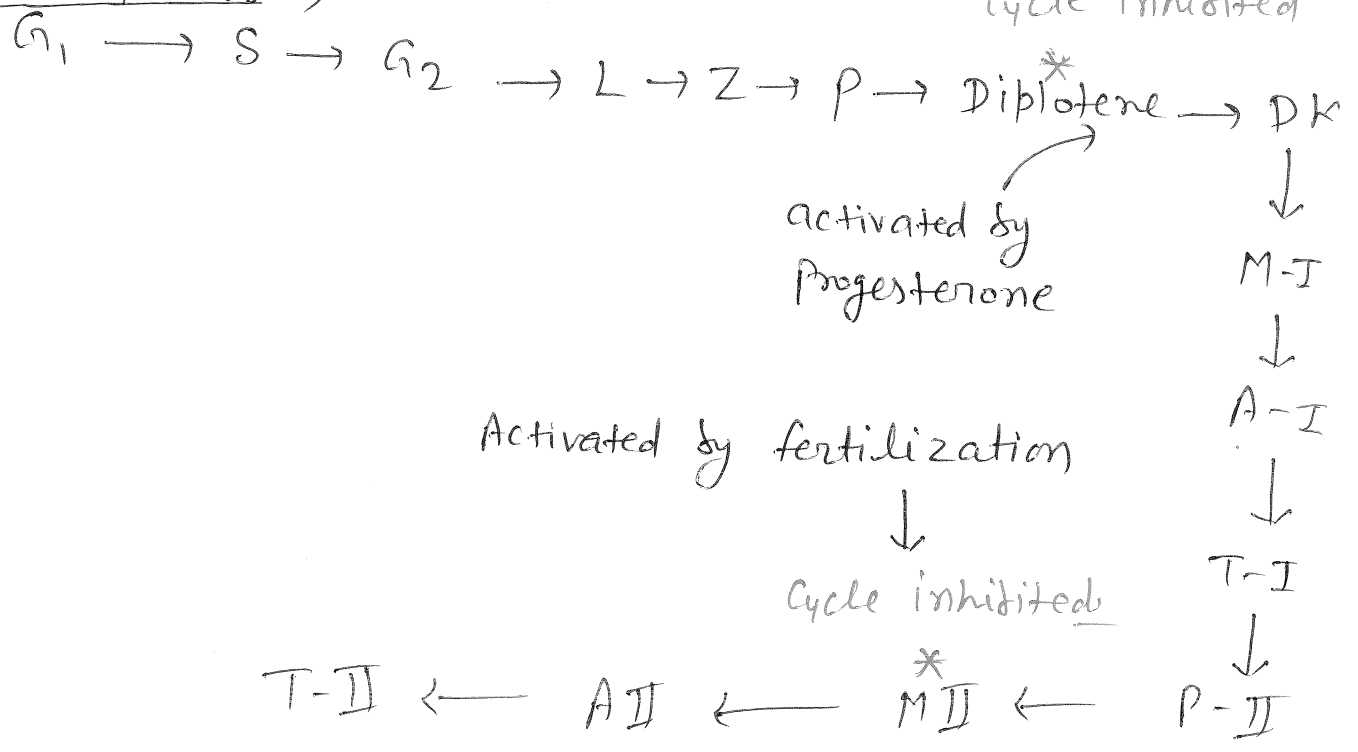 Cycle inhibited
G₁ → S → G₂ → L → Z → P → Diplotene → DK
*
activated by
Progesterone
↓
M-I
↓
A-I
↓
T-I
↓
Activated by fertilization
↓
Cycle inhibited
*
T-II ← AII ← MII ← P-II